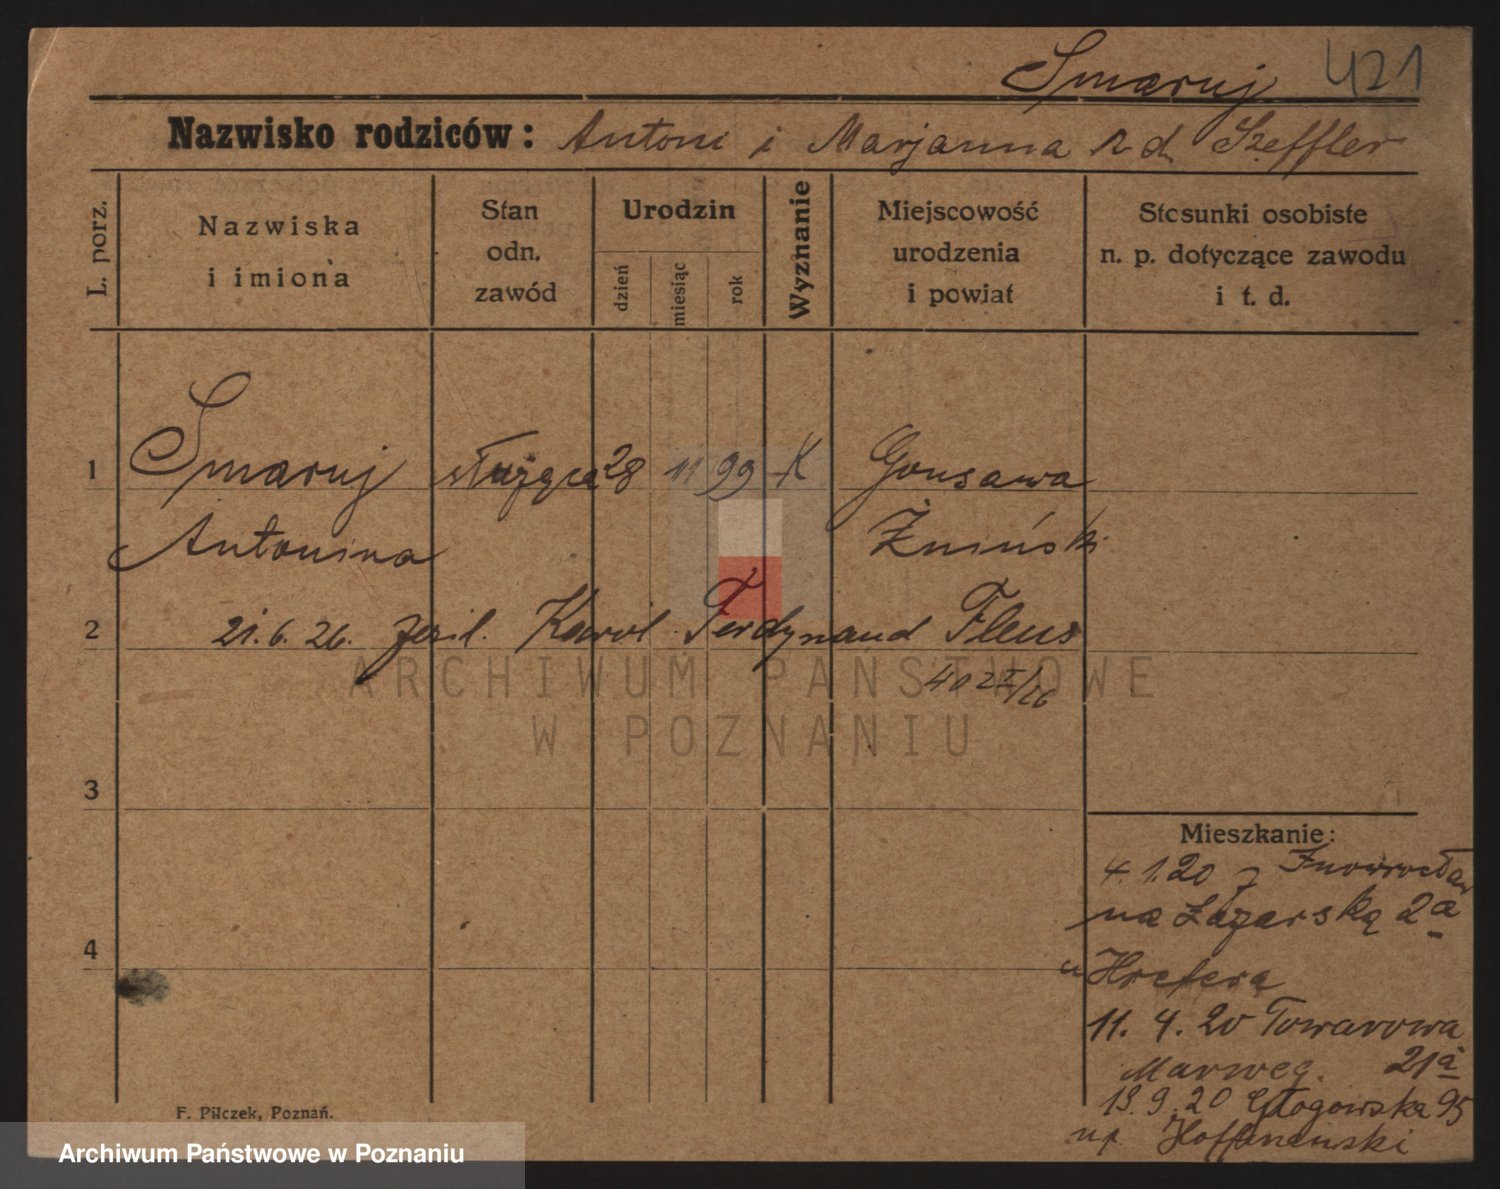 Smaruj 421
Nazwisko rodziców: Antoni i Marjanna z d. Szeffler
L. porz.
Nazwiska
i imiona
Stan
odn.
zawód
Urodzin
dzień
miesiąc
rok
Wyznanie
Miejscowość
urodzenia
i powiat
Stosunki osobiste
n. p. dotyczące zawodu
i t. d.
1 Smaruj służąca 28 11 99 K Gonsawa
Antonina Żniński
2 21.6.26. Karol Ferdynand Fleus
ARCHIWUM PAŃSTWOWE
W POZNANIU
3
Mieszkanie:
4.1.20 z Inowrocław
na Łazarską 2a
4
u
11.4.20 Towarowa
21a
Marweg.
19.9.20 Głogowska 95
Hoffmański
F. Pilczek, Poznań.
Archiwum Państwowe w Poznaniu